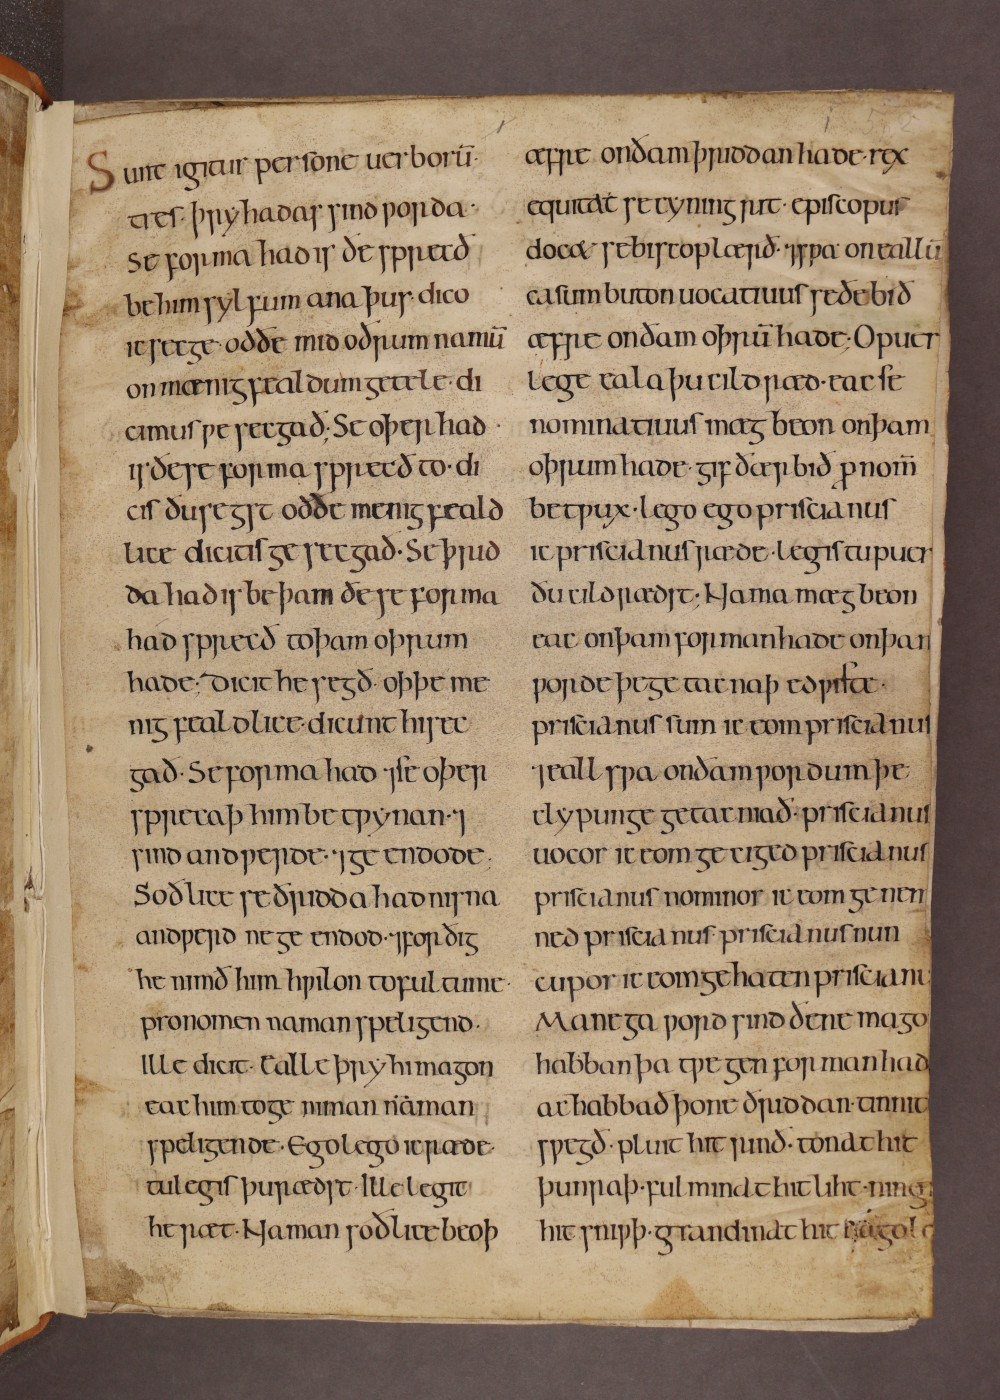 Sunt igitur persone uerborū·
tres· þry hadas sind ƿorda·
Se forma had is ðe sprecð
be him sylfum ana þus· dico
ic secge· oððe mid oðrum namū
on mænigfealdum getele· di
cimus ƿe secgað; Se oþer had·
is ðe se forma sprecð to· di
cis ðu segst oððe menigfeald
lice dicitis ge secgað· Se þrid
da had is be þam ðe se forma
had sprecð to þam oþrum
hade; Dicit he segð· oþþe me
nigfealdlice· dicunt hi sec
gað· Se forma had ⁊ se oþer
sprecaþ him betƿynan· ⁊
sind andƿerde· ⁊ geendode;
Soðlice se ðridda had nis na
andƿerd ne geendod· ⁊ forðig
he nimð him hƿilon to fultume·
pronomen naman speligend·
Ille dicit· Ealle þry hi magon
eac him to geniman naman
speligende· Ego lego ic ræde·
tu legis þu rædst· Ille legit
he ræt· Naman soðlice beoþ
æfre on ðam þriddan hade· rex
equitat se cyning rit· episcopus
docet se bisceop lærð· ⁊ sƿa on eallū
casum buton uocatiuus se ðe bið
æfre on ðam oþrū hade; O puer
lege eala þu cild ræd· eac se
nominatiuus mæg beon on þam
oþrum hade· gif ðær bið ꝓnom̄
betƿux· lego ego priscianus
ic priscianus ræde· legis tu puer
ðu cild rædst; Nama mæg beon
eac on þam forman hade on þan
ƿorde þe getacnaþ edƿiste·
priscianus sum ic eom priscianus
⁊ eall sƿa on ðam ƿordum þe
clypunge getacniað· priscianus
uocor ic eom geciged priscianus
priscianus nominor ic eom genem
ned priscianus priscianus nun
cupor ic eom gehaten priscianu
Manega ƿord sind ðe ne mago
habban þa tƿegen forman had
ac habbað þone ðriddan· tinnit
sƿegð· pluit hit rinð· tonat hit
þunraþ· fulminat hit liht· ning
hit sniƿþ· grandinat hit hagol